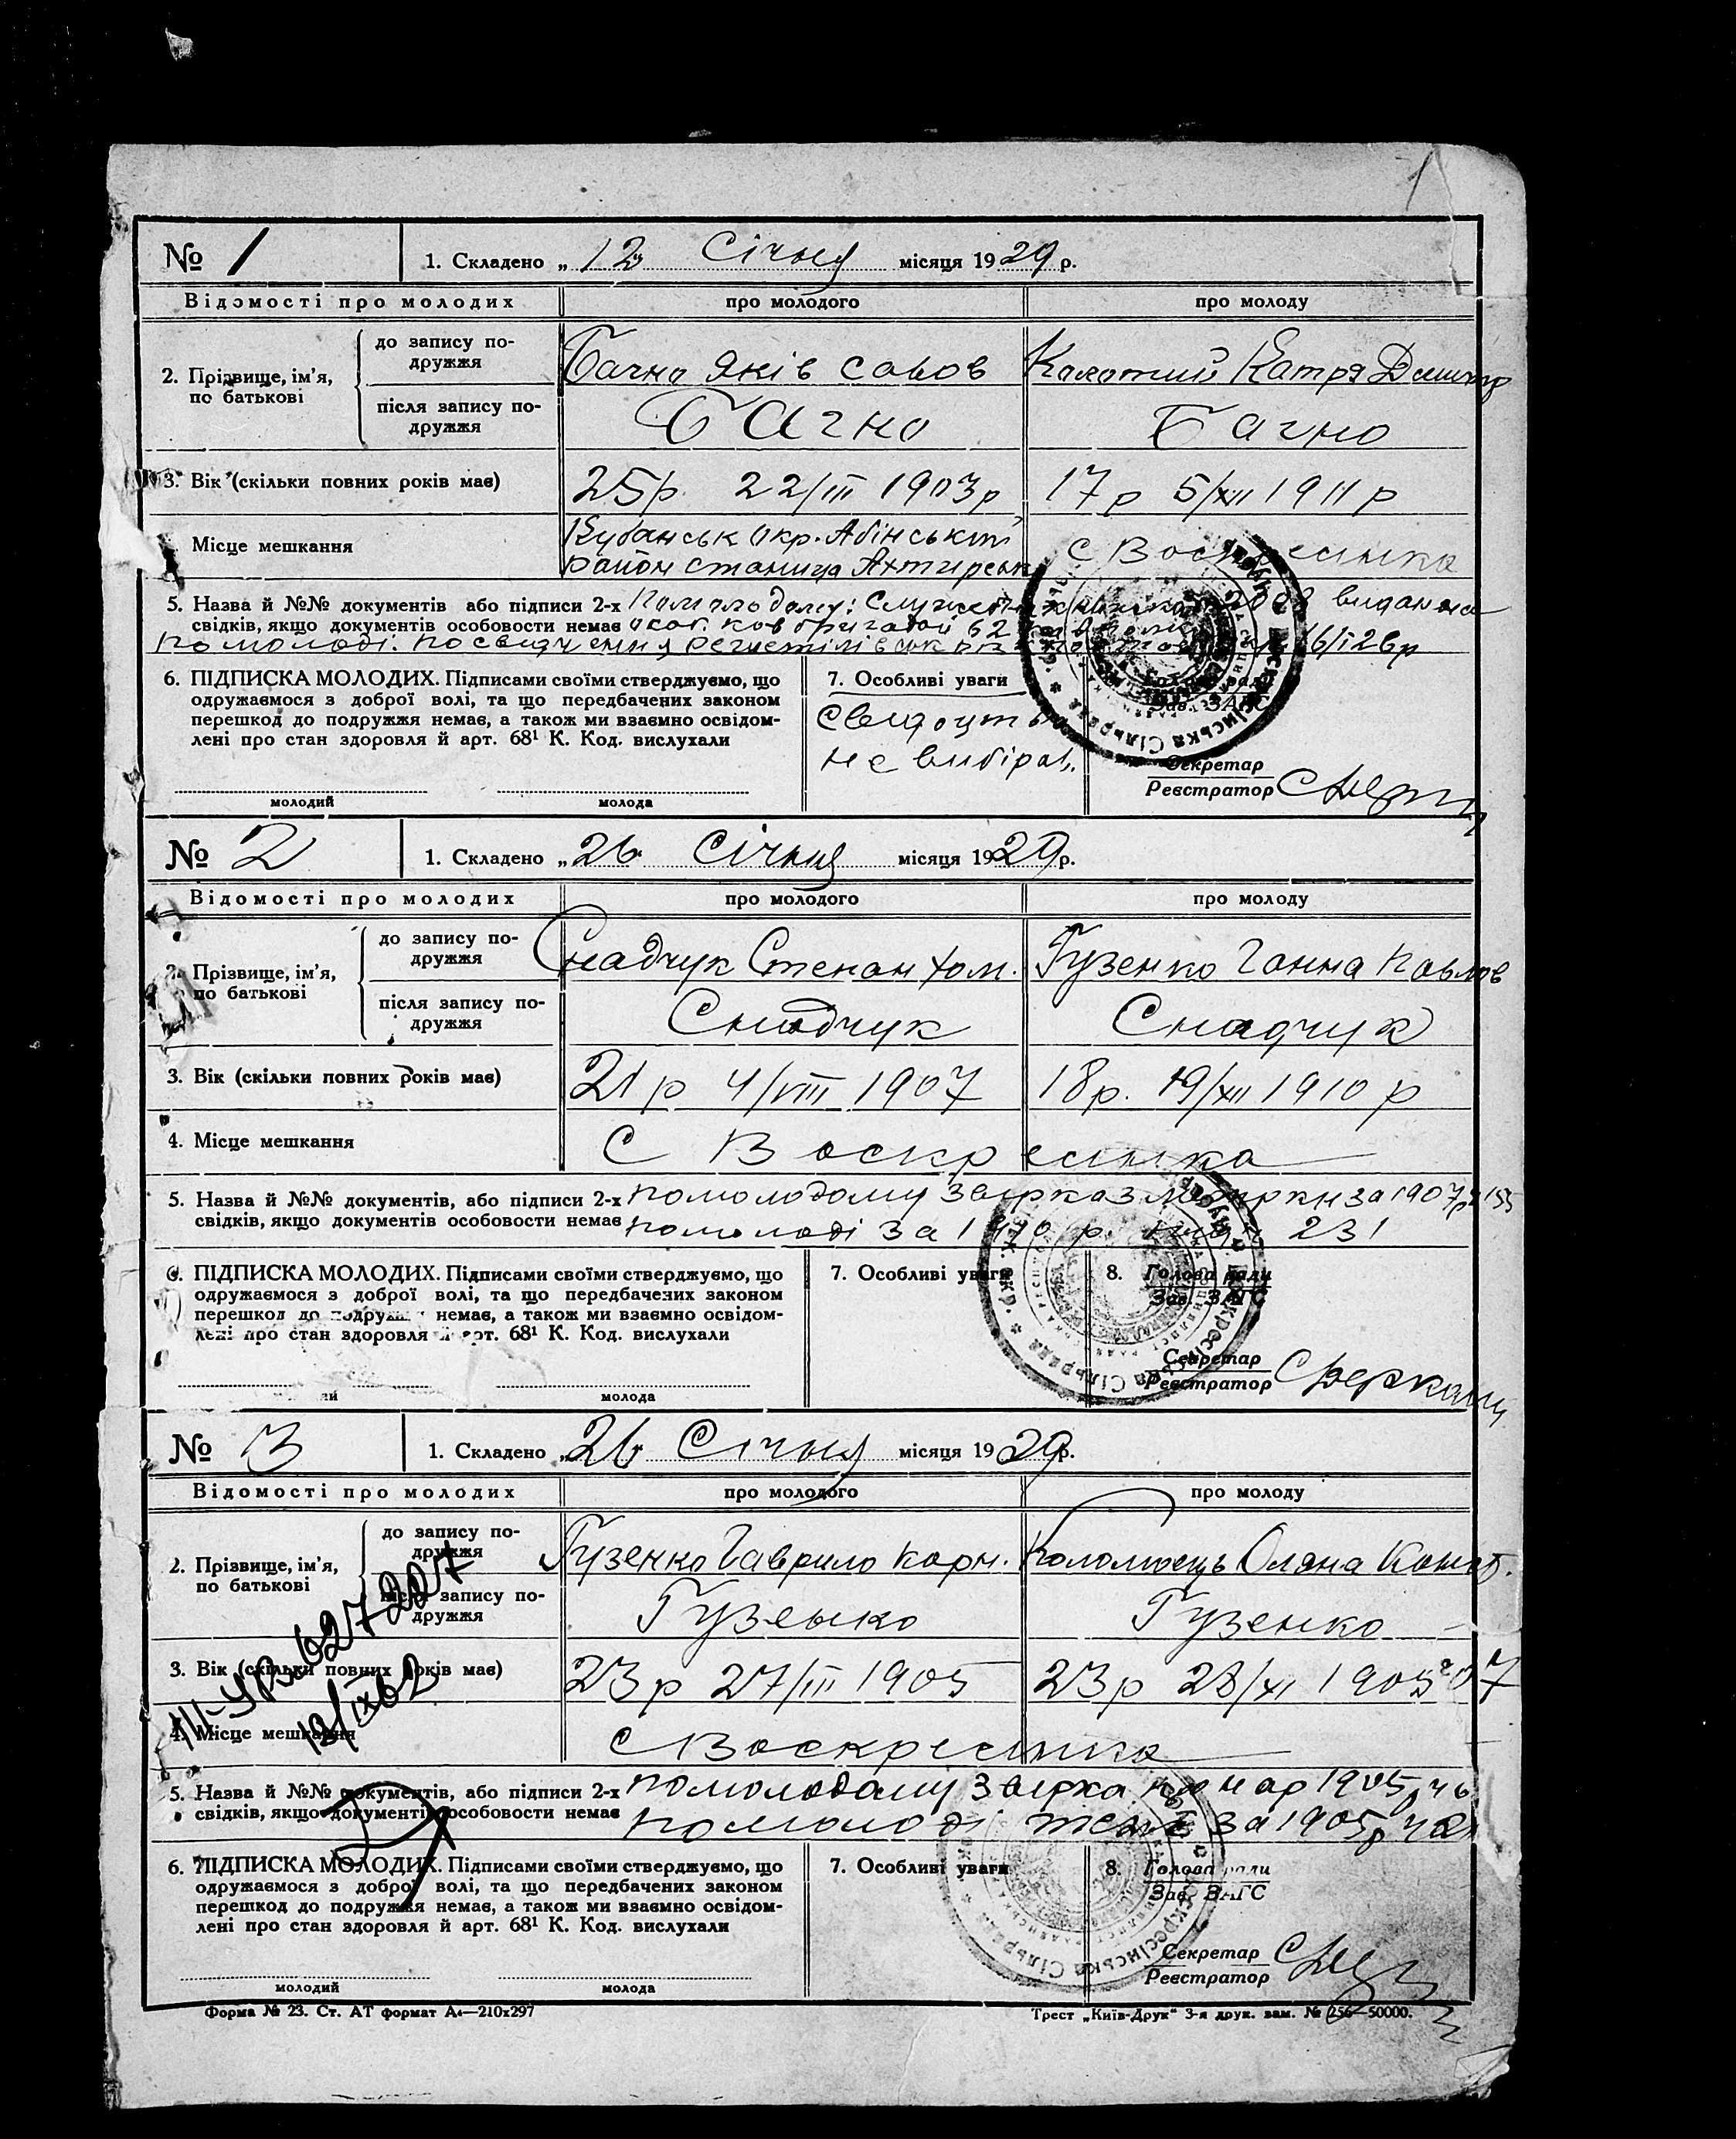 № 1 1. Складено „ 12 Січня місяця 1929 р.
Відомості про молодих про молодого про молоду
2. Прізвище, ім'я, по батькові
до запису подружжя Багно Яків Савов Катря Дмитр
після запису подружжя Багно Багно
3. Вік (скільки повних років має) 25р. 22/III 1903р 17р 5/XII 1911р
Місце мешкання Кубанськ Окр. Абінський
район станица Ахтирськ с Воскресінка
5. Назва й №№ документів або підписи 2-х По молодому: видана
свідків, якщо документів особовости немає бригадой 62
По молоді: посвідчення 16/I 26р
6. ПІДПИСКА МОЛОДИХ. Підписами своїми стверджуємо, що
одружаємося з доброї волі, та що передбачених законом
перешкод до подружжя немає, а також ми взаємно освідом-
лені про стан здоровля й арт. 68¹ К. Код. вислухали
молодий молода
7. Особливі уваги
Свідоцтв
не вибірал.
Зав. ЗАГС
Секретар
Реєстратор
№ 2 1. Складено „ 26 Січня місяця 1929 р.
Відомості про молодих про молодого про молоду
2. Прізвище, ім'я, по батькові
до запису подружжя Снадчук Степан Хом. Гузенко Ганна Павлов
після запису подружжя Снадчук Снадчук
3. Вік (скільки повних років має) 21р 4/VIII 1907 18р. 19/XII 1910 р
4. Місце мешкання С Воскресінка
5. Назва й №№ документів, або підписи 2-х по молодому за 1907р
свідків, якщо документів особовости немає по молоді за 1910 р. 231
6. ПІДПИСКА МОЛОДИХ. Підписами своїми стверджуємо, що
одружаємося з доброї волі, та що передбачених законом
перешкод до подружжя немає, а також ми взаємно освідом-
лені про стан здоровля й арт. 68¹ К. Код. вислухали
молода
7. Особливі уваги
8. Голова ради
Зав. ЗАГС
Секретар
Реєстратор
№ 3 1. Складено „ 26 Січня місяця 1929 р.
Відомості про молодих про молодого про молоду
2. Прізвище, ім'я, по батькові
до запису подружжя Гузенко Гаврило Корн. Коломієць Оляна
після запису подружжя Гузенко Гузенко
3. Вік (скільки повних років має) 23р 27/III 1905 23р 28/XI 1905
4. Місце мешкання с Воскресінка
5. Назва й №№ документів, або підписи 2-х по молодому 1905р
свідків, якщо документів особовости немає по молоді за 1905р
6. ПІДПИСКА МОЛОДИХ. Підписами своїми стверджуємо, що
одружаємося з доброї волі, та що передбачених законом
перешкод до подружжя немає, а також ми взаємно освідом-
лені про стан здоровля й арт. 68¹ К. Код. вислухали
молодий молода
7. Особливі уваги
8. Голова ради
Зав. ЗАГС
Секретар
Реєстратор
Форма № 23. Ст. АТ формат А₄—210х297 Трест „Київ-Друк“ 3-я друк. зам. № 256—50000.